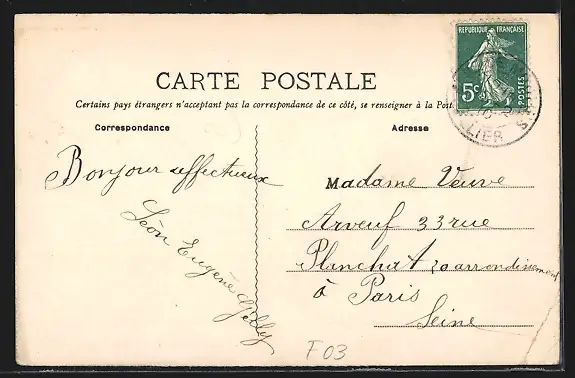 RÉPUBLIQUE FRANÇAISE
5c POSTES
LIER
CARTE POSTALE
Certains pays étrangers n'acceptant pas la correspondance de ce côté, se renseigner à la Post
Correspondance
Adresse
Bonjour affectueux
Léon Eugène
Madame Veuve
Arveuf 33 rue
Planchat 20 arrondissement
à Paris
Seine
F03